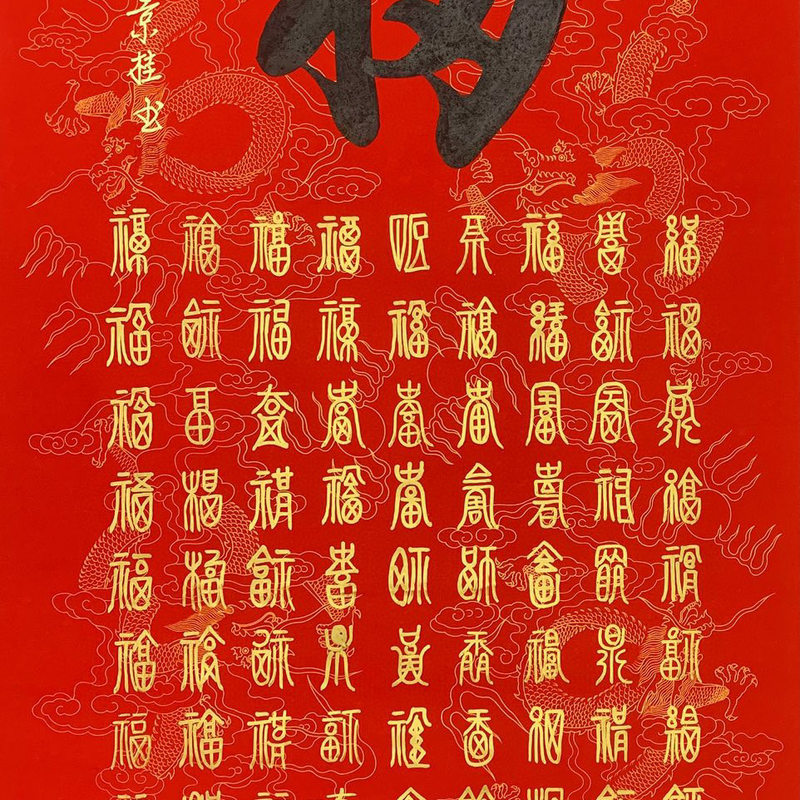 桂书
福福福福福福福福福
福福福福福福福福福
福福福福福福福福福
福福福福福福福福福
福福福福福福福福福
福福福福福福福福福
福福福福福福福福福